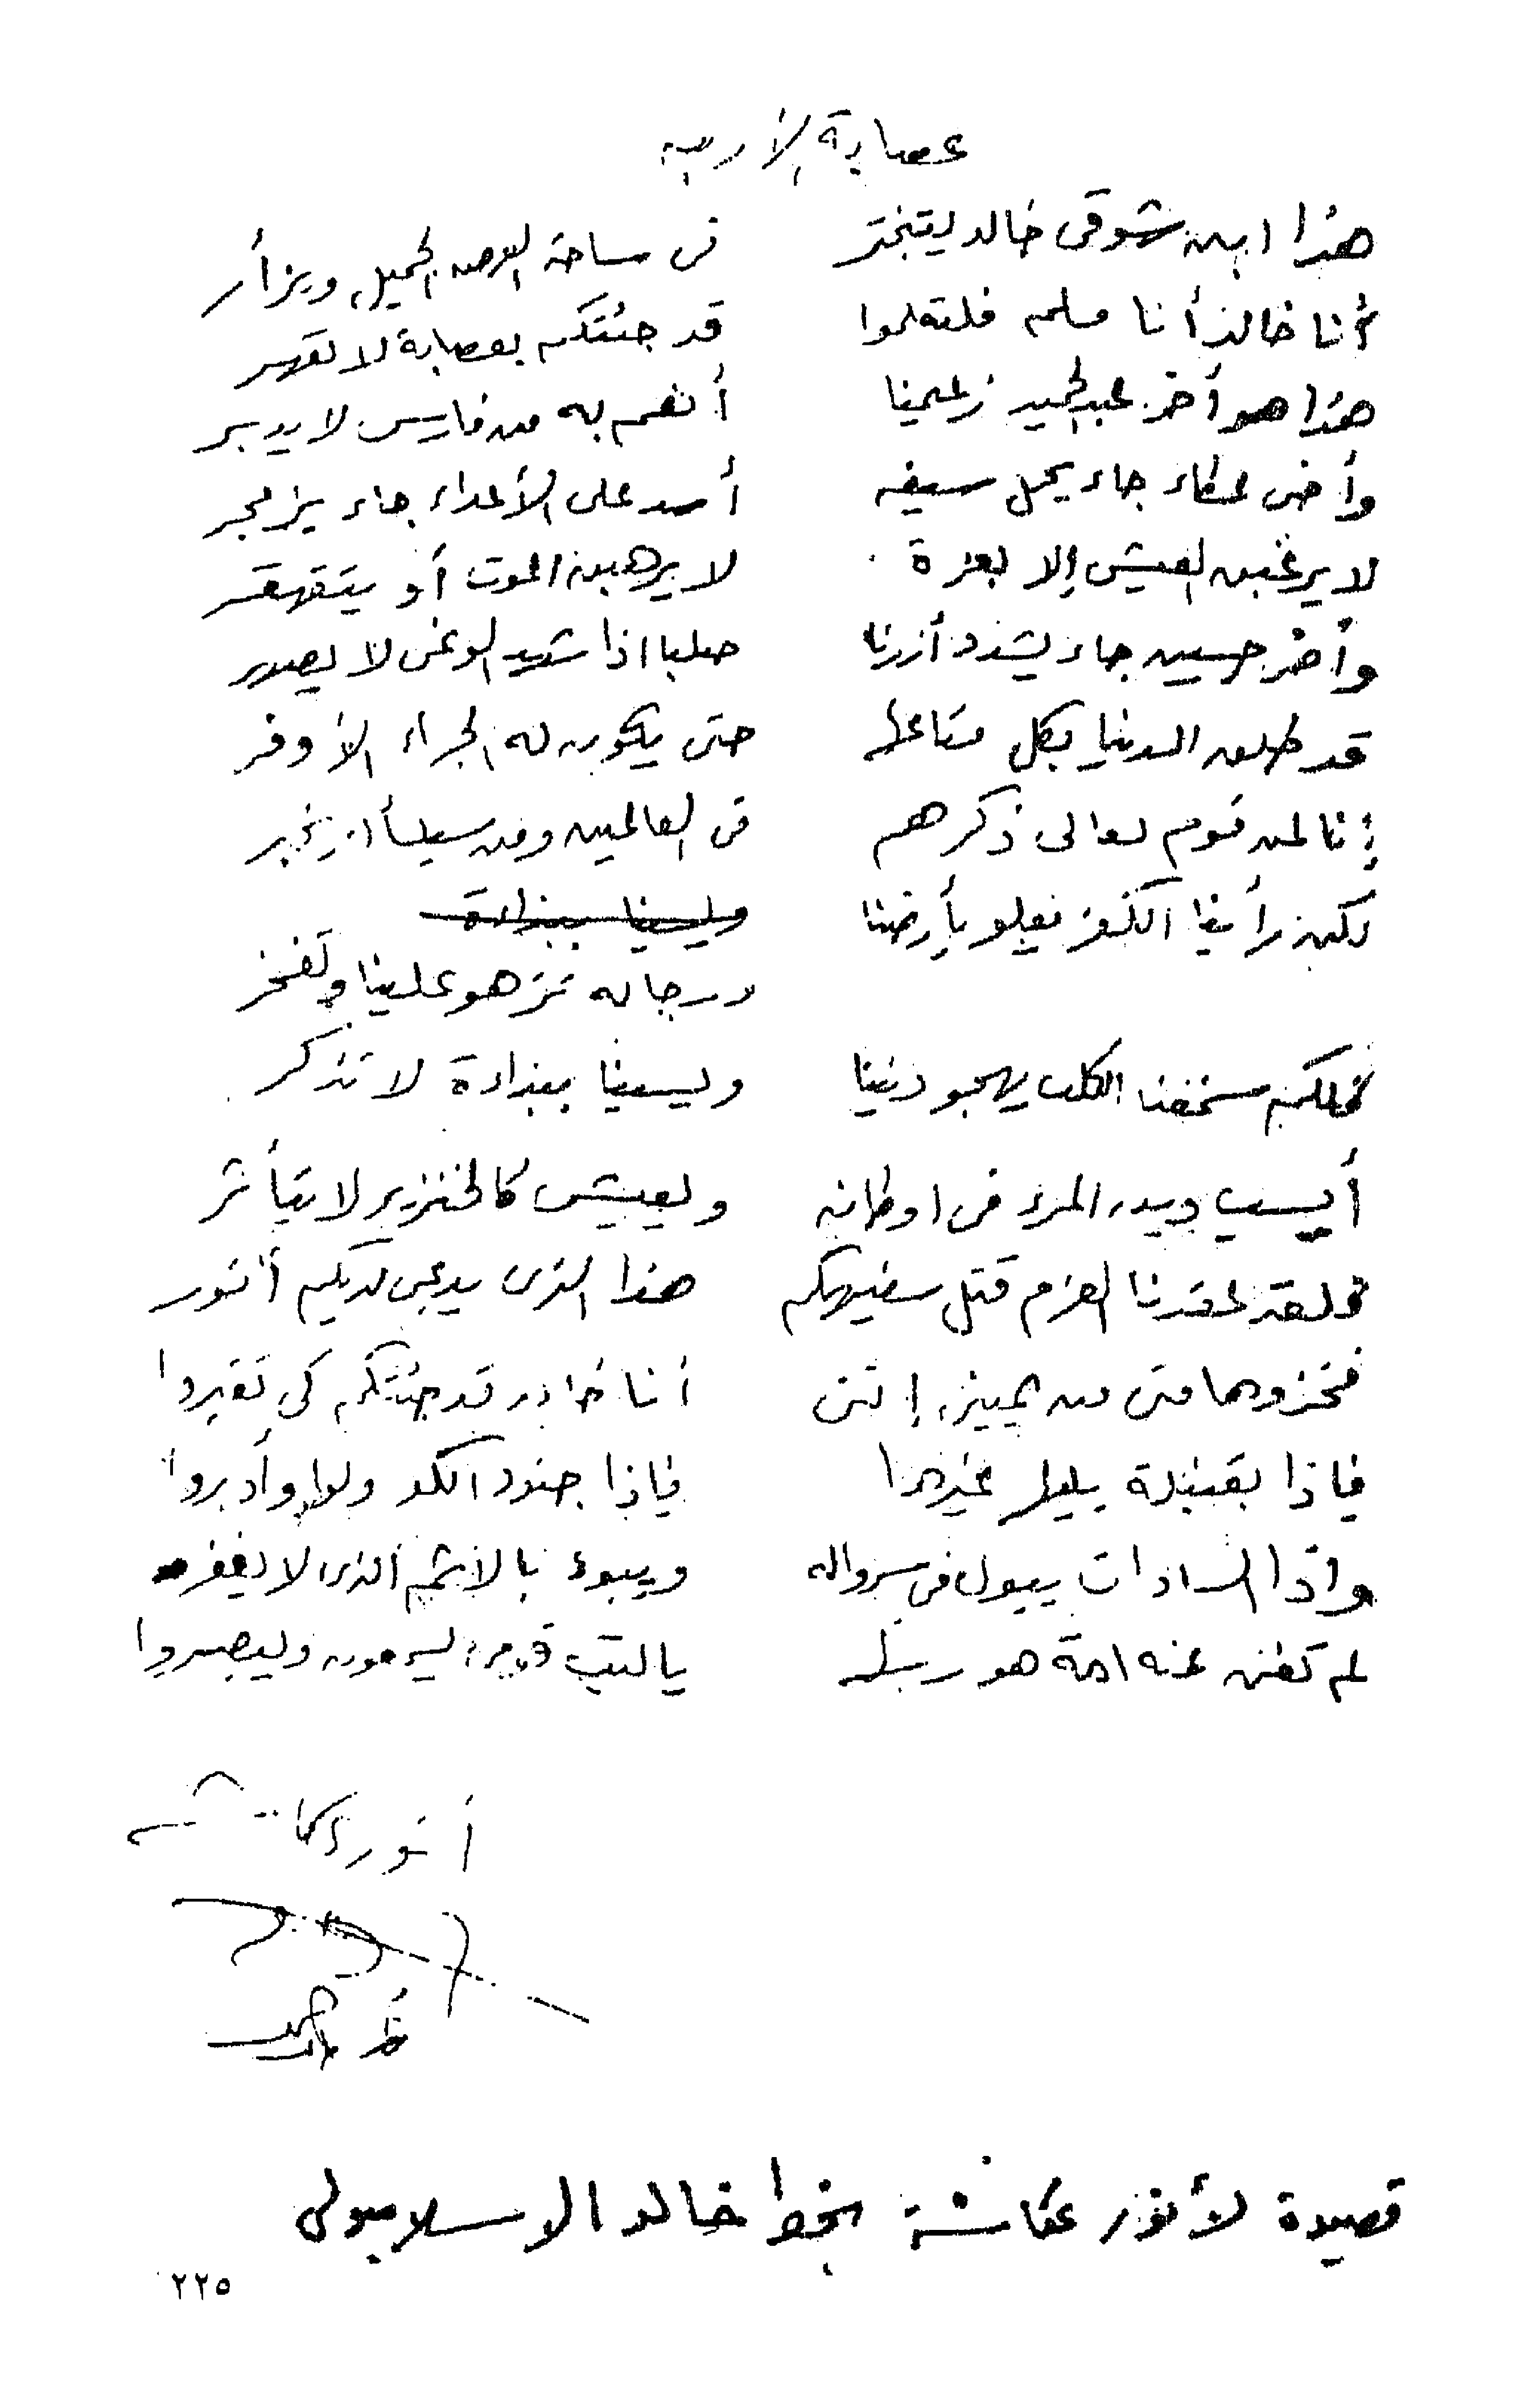 عصابة الأربعه
هذا ابن شوقى خالد يتبختر فى ساحة العرض الجميل ويزأر
أنا خالد أنا مسلم فلتعلموا قد جئتكم بعصابة لا تقهر
هذا هو أخى عبد الحميد زعيمنا أنعم به من فارس لا يدبر
وأخى عطاء جاء يحمل سيفه أسد على الأعداء جاء يزمجر
لا يرغبن العيش إلا بعزة لا يرهبن الموت أو يتقهقر
وأخى حسين جاء يشدد أزرنا صلبا اذا شهد الوغى لا يصدر
قد طلق الدنيا بكل متاعها حتى يكون له الجزاء الأوفر
إنا لمن قوم لعالى ذكرهم فى العالمين ومن سيسأل يخبر
لكن رأينا الكفر يعلو بأرضنا ويسبنا ببذاءة
ورجاله تزهو علينا وتفخر
فمليكم سخفنا الكلب يهجو ديننا ويسبنا ببذاءة لا تذكر
أيسب دين المرء فى اوطانه ويعيش كالخنزير لا يتأثر
فلقد عقدنا العزم قتل سفيهكم هذا الذى يدعى لديكم أنور
فخذوها منى من يمينى إننى أنا خالد قد جئتكم كى تغيروا
فإذا بقنبلة يليها غيرها فإذا جنود الكفر ولوا وأدبروا
واذا السادات يبول فى سرواله ويبوء بالاثم الذى لا يغفر
لم تغنى عنه امة هو ربها ياليت قومى يسمعون وليبصروا
أنور عكاشة
قصيدة لأنور عكاشة بخط خالد الاسلامبولى
٢٢٥